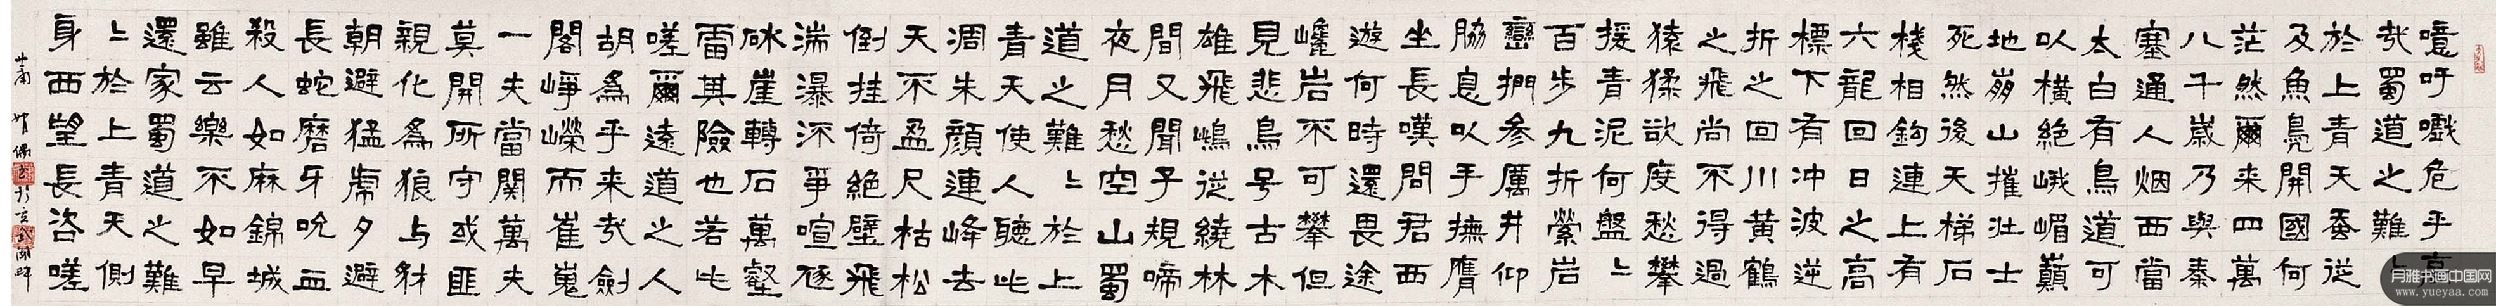 噫吁戲危乎高
哉蜀道之難
於上青天蚕従
及魚鳧開國何
茫然爾来四萬
八千歲乃與秦
塞通人烟西當
太白有鳥道可
以横絶峨嵋巔
地崩山摧壮士
死然後天梯石
棧相鈎連上有
六龍回日之高
標下有冲波逆
折之回川黄鶴
之飛尚不得過
猿猱欲度愁攀
援青泥何盤〻
百步九折縈岩
巒捫參厲井仰
脇息以手撫膺
坐長嘆問君西
遊何時還畏途
巉岩不可攀但
見悲鳥号古木
雄飛鳴従繞林
間又聞子規啼
夜月愁空山蜀
道之難〻於上
青天使人聽此
凋朱顔連峰去
天不盈尺枯松
倒挂倚絶壁飛
湍瀑流爭喧豗
砯崖轉石萬壑
雷其險也若此
嗟爾遠道之人
胡為乎来哉劍
閣崢嶸而崔嵬
一夫當関萬夫
莫開所守或匪
親化為狼与豺
朝避猛虎夕避
長蛇磨牙吮血
殺人如麻錦城
雖云樂不如早
還家蜀道之難
〻於上青天側
身西望長咨嗟
月雅书画中国网
www.yueyaa.com